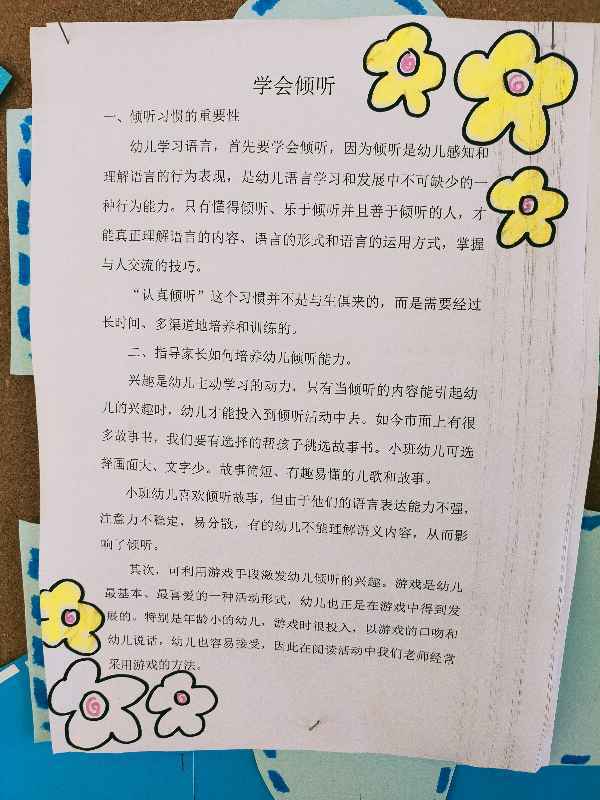 学会倾听
一、倾听习惯的重要性
幼儿学习语言，首先要学会倾听，因为倾听是幼儿感知和
理解语言的行为表现，是幼儿语言学习和发展中不可缺少的一
种行为能力。只有懂得倾听、乐于倾听并且善于倾听的人，才
能真正理解语言的内容、语言的形式和语言的运用方式，掌握
与人交流的技巧。
“认真倾听”这个习惯并不是与生俱来的，而是需要经过
长时间、多渠道地培养和训练的。
二、指导家长如何培养幼儿倾听能力。
兴趣是幼儿主动学习的动力，只有当倾听的内容能引起幼
儿的兴趣时，幼儿才能投入到倾听活动中去。如今市面上有很
多故事书，我们要有选择的帮孩子挑选故事书。小班幼儿可选
择画面大、文字少。故事简短、有趣易懂的儿歌和故事。
小班幼儿喜欢倾听故事，但由于他们的语言表达能力不强，
注意力不稳定，易分散，有的幼儿不能理解语义内容，从而影
响了倾听。
其次，可利用游戏手段激发幼儿倾听的兴趣。游戏是幼儿
最基本、最喜爱的一种活动形式，幼儿也正是在游戏中得到发
展的。特别是年龄小的幼儿，游戏时很投入，以游戏的口吻和
幼儿说话，幼儿也容易接受，因此在阅读活动中我们老师经常
采用游戏的方法。